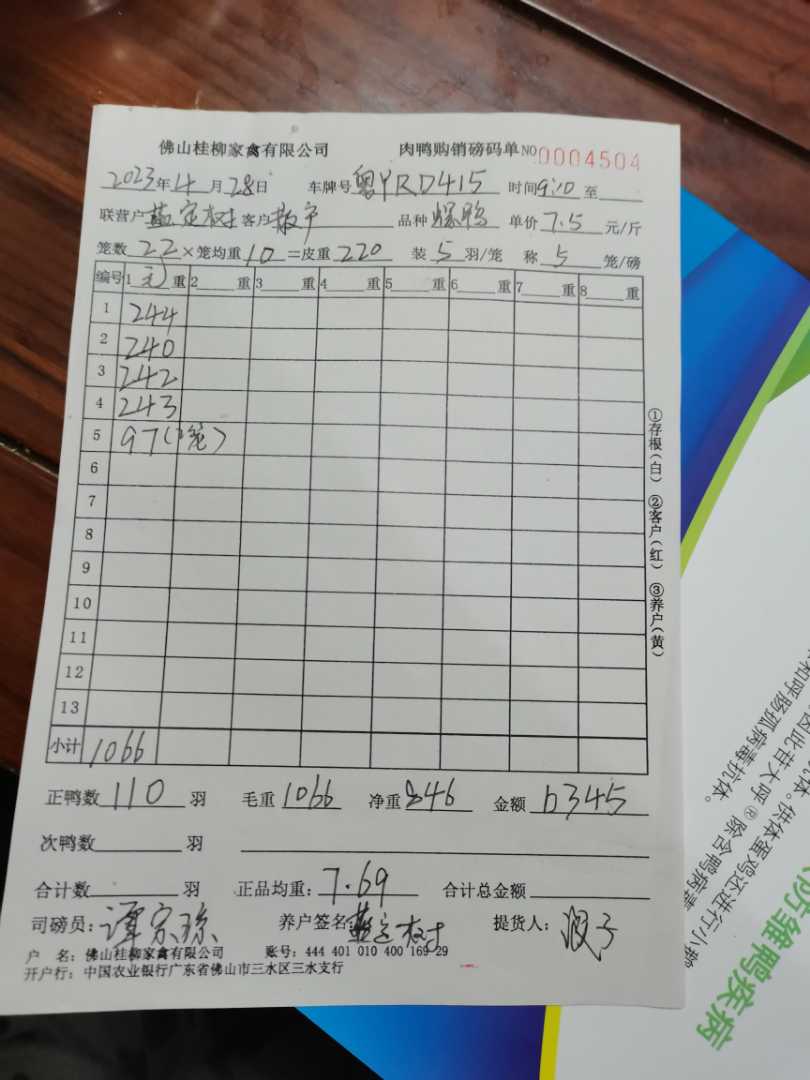 佛山桂柳家禽有限公司 肉鸭购销磅码单 NO 0004504
2023年4月28日 车牌号粤YRD415 时间9:10至
联营户 定树 客户散户 品种 鸭 单价7.5元/斤
笼数22×笼均重10=皮重220 装5羽/笼 称5笼/磅
编号 1 重 2 重 3 重 4 重 5 重 6 重 7 重 8 重
1 244
2 240
3 242
4 243
5 97(2笼)
6
7
8
9
10
11
12
13
小计 1066
正鸭数110羽 毛重1066 净重846 金额6345
次鸭数 羽
合计数 羽 正品均重:7.69 合计总金额
司磅员:谭宗 养户签名: 定树 提货人:
户 名:佛山桂柳家禽有限公司 账号:444 401 010 400 169 29
开户行:中国农业银行广东省佛山市三水区三水支行
①存根(白) ②客户(红) ③养户(黄)
和呼肠孤病毒抗体。
防雏鸭疾病